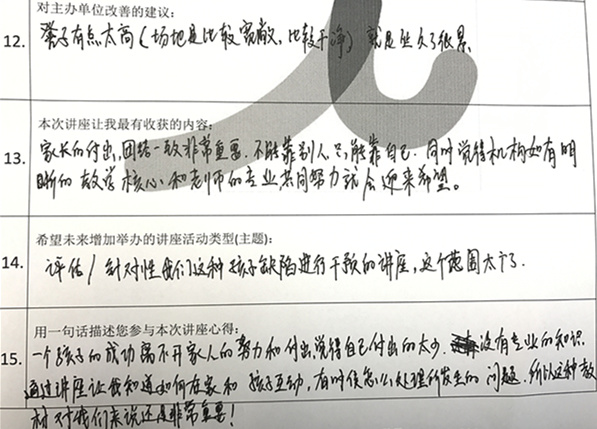 对主办单位改善的建议:
12. 凳子有点太高(场地是比较宽敞,比较干净)就是坐久了很累.
本次讲座让我最有收获的内容:
13. 家长的付出,团结一致非常重要.不能靠别人,只能靠自己.同时觉得机构如有明
晰的教学核心和老师的专业共同努力就会迎来希望。
希望未来增加举办的讲座活动类型(主题):
14. 评估/针对性我们这种孩子缺陷进行干预的讲座,这个范围太广了.
用一句话描述您参与本次讲座心得:
15. 一个孩子的成功离不开家人的努力和付出,觉得自己付出的太少.没有专业的知识.
通过讲座让我知道如何在家和孩子互动,有时候怎么处理所发生的问题.所以这种教
材对我们来说还是非常重要!